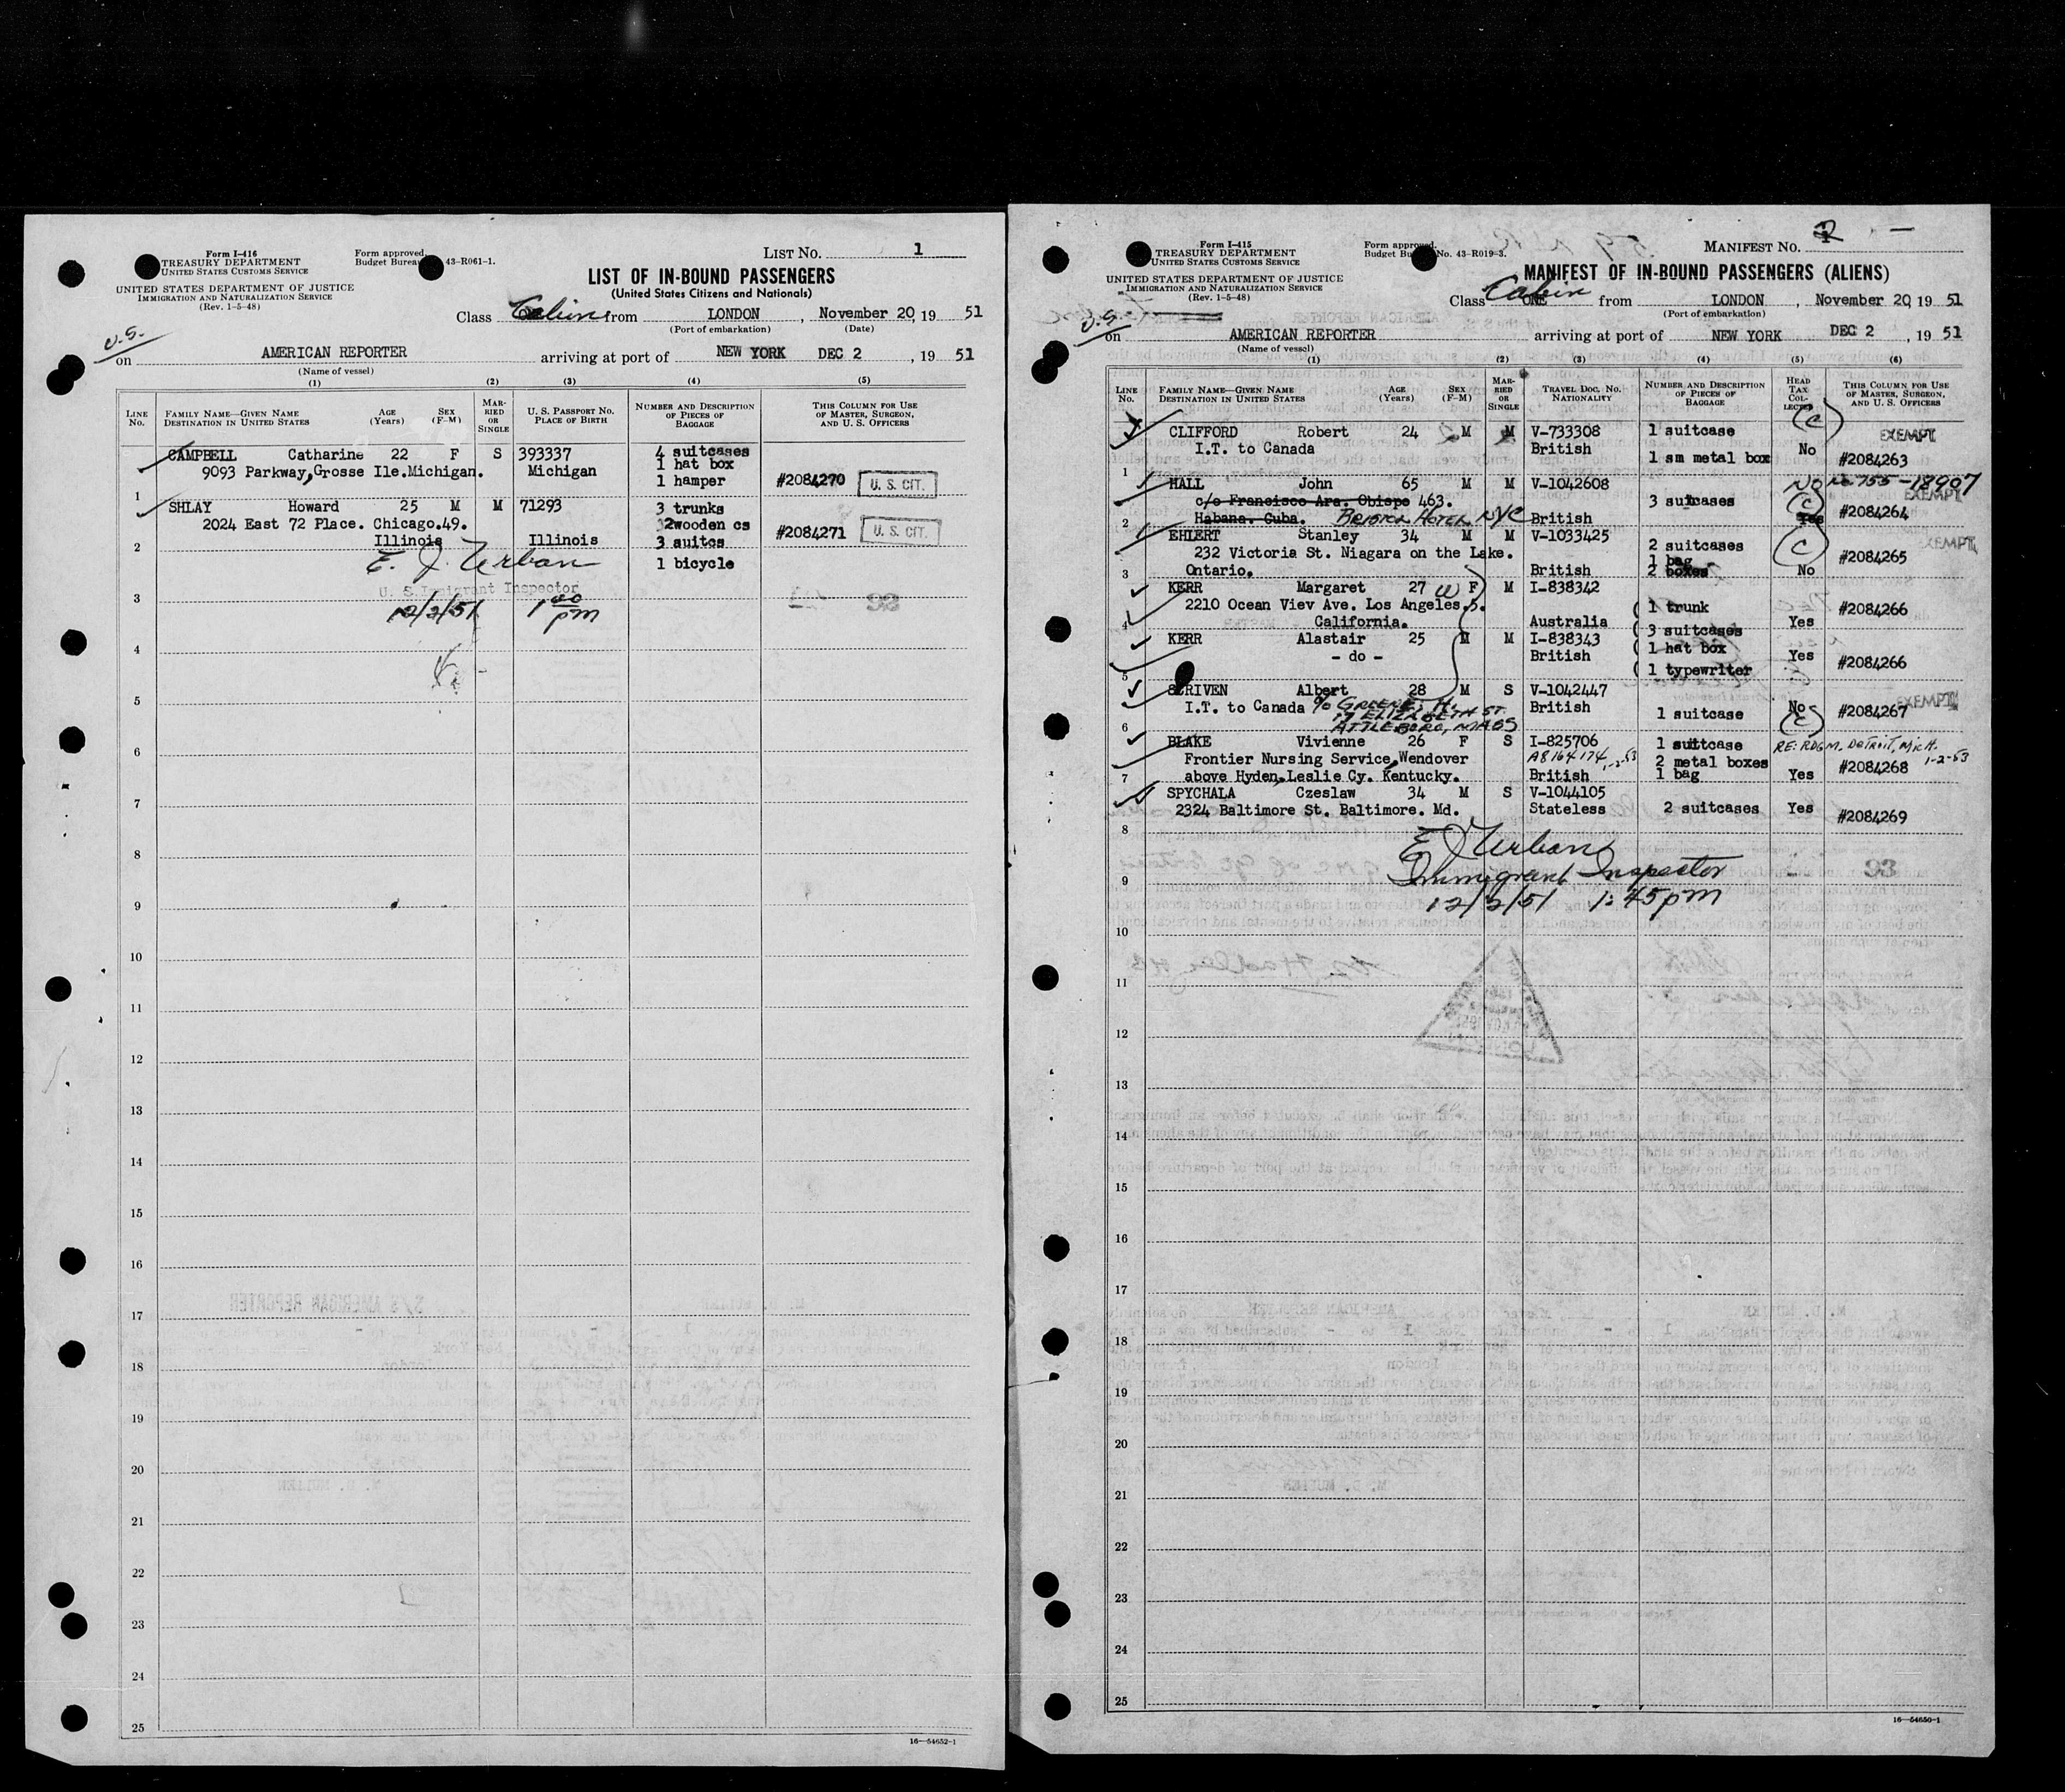 Form I-416
TREASURY DEPARTMENT
UNITED STATES CUSTOMS SERVICE
UNITED STATES DEPARTMENT OF JUSTICE
IMMIGRATION AND NATURALIZATION SERVICE
(Rev. 1-5-48)
Form approved.
Budget Bureau 43-R061-1.
LIST NO. 1
LIST OF IN-BOUND PASSENGERS
(United States Citizens and Nationals)
Class Cabin from LONDON, November 20, 19 51
(Port of embarkation) (Date)
U.S.
on AMERICAN REPORTER arriving at port of NEW YORK DEC 2, 19 51
(Name of vessel)
(1) (2) (3) (4) (5)
LINE No. FAMILY NAME—GIVEN NAME DESTINATION IN UNITED STATES AGE (Years) SEX (F-M) MARRIED OR SINGLE U.S. PASSPORT NO. PLACE OF BIRTH NUMBER AND DESCRIPTION OF PIECES OF BAGGAGE THIS COLUMN FOR USE OF MASTER, SURGEON, AND U. S. OFFICERS
CAMPBELL Catharine 22 F S 393337 4 suitcases
1 hat box
9093 Parkway,Grosse Ile.Michigan. Michigan
1 hamper #2084270 U. S. CIT.
1
SHLAY Howard 25 M M 71293 3 trunks
2024 East 72 Place. Chicago.49. 2wooden cs
Illinois Illinois 3 suitcs #2084271 U. S. CIT.
2
E. J. Urban 1 bicycle
U. S. Immigrant Inspector
3
12/2/51 1 00 pm
4
5
6
7
8
9
10
11
12
13
14
15
16
17
18
19
20
21
22
23
24
25
16—54652-1
Form I-415
TREASURY DEPARTMENT
UNITED STATES CUSTOMS SERVICE
UNITED STATES DEPARTMENT OF JUSTICE
IMMIGRATION AND NATURALIZATION SERVICE
(Rev. 1-5-48)
Form approved.
Budget Bu No. 43-R019-3.
MANIFEST NO.
MANIFEST OF IN-BOUND PASSENGERS (ALIENS)
Class Cabin ONE from LONDON, November 20, 19 51
(Port of embarkation)
U.S.
on AMERICAN REPORTER arriving at port of NEW YORK DEC 2, 19 51
(Name of vessel)
(1) (2) (3) (4) (5) (6)
LINE No. FAMILY NAME—GIVEN NAME DESTINATION IN UNITED STATES AGE (Years) SEX (F-M) MARRIED OR SINGLE TRAVEL DOC. NO. NATIONALITY NUMBER AND DESCRIPTION OF PIECES OF BAGGAGE HEAD TAX COLLECTED THIS COLUMN FOR USE OF MASTER, SURGEON, AND U. S. OFFICERS
CLIFFORD Robert 24 M M V-733308 1 suitcase (C) EXEMPT
I.T. to Canada British No
1 sm metal box #2084263
1
HALL John 65 M M V-1042608 NO 755-18907
c/o Francisco Ara. Obispo 463. 3 suitcases (C) EXEMPT #2084264
2
Habana. Cuba. BRISTOL HOTEL NYC British Yes
EHLERT Stanley 34 M M V-1033425 EXEMPT
232 Victoria St. Niagara on the Lake. 2 suitcases (C) #2084265
1 bag
3
Ontario. British 2 boxes No
KERR Margaret 27 W F M I-838342
2210 Ocean Viev Ave. Los Angeles.5. 1 trunk #2084266
4
California. Australia 3 suitcases Yes
KERR Alastair 25 M M I-838343 1 hat box
- do - British Yes #2084266
5
1 typewriter
SCRIVEN Albert 28 M S V-1042447 EXEMPT
I.T. to Canada % GREENE, H. British 1 suitcase No #2084267
17 ELIZABETH ST. (C)
6
ATTLEBORO, MASS
BLAKE Vivienne 26 F S I-825706 1 suitcase RE: RDGM. DETROIT, MICH. 1-2-53
Frontier Nursing Service,Wendover A8164174 1-2-53 2 metal boxes #2084268
7
above Hyden,Leslie Cy. Kentucky. British 1 bag Yes
SPYCHALA Czeslaw 34 M S V-1044105
2324 Baltimore St. Baltimore. Md. Stateless 2 suitcases Yes #2084269
8
E J Urban
9
Immigrant Inspector
12/2/51 1:45pm
10
11
12
13
14
15
16
17
18
19
20
21
22
23
24
25
16—54650-1